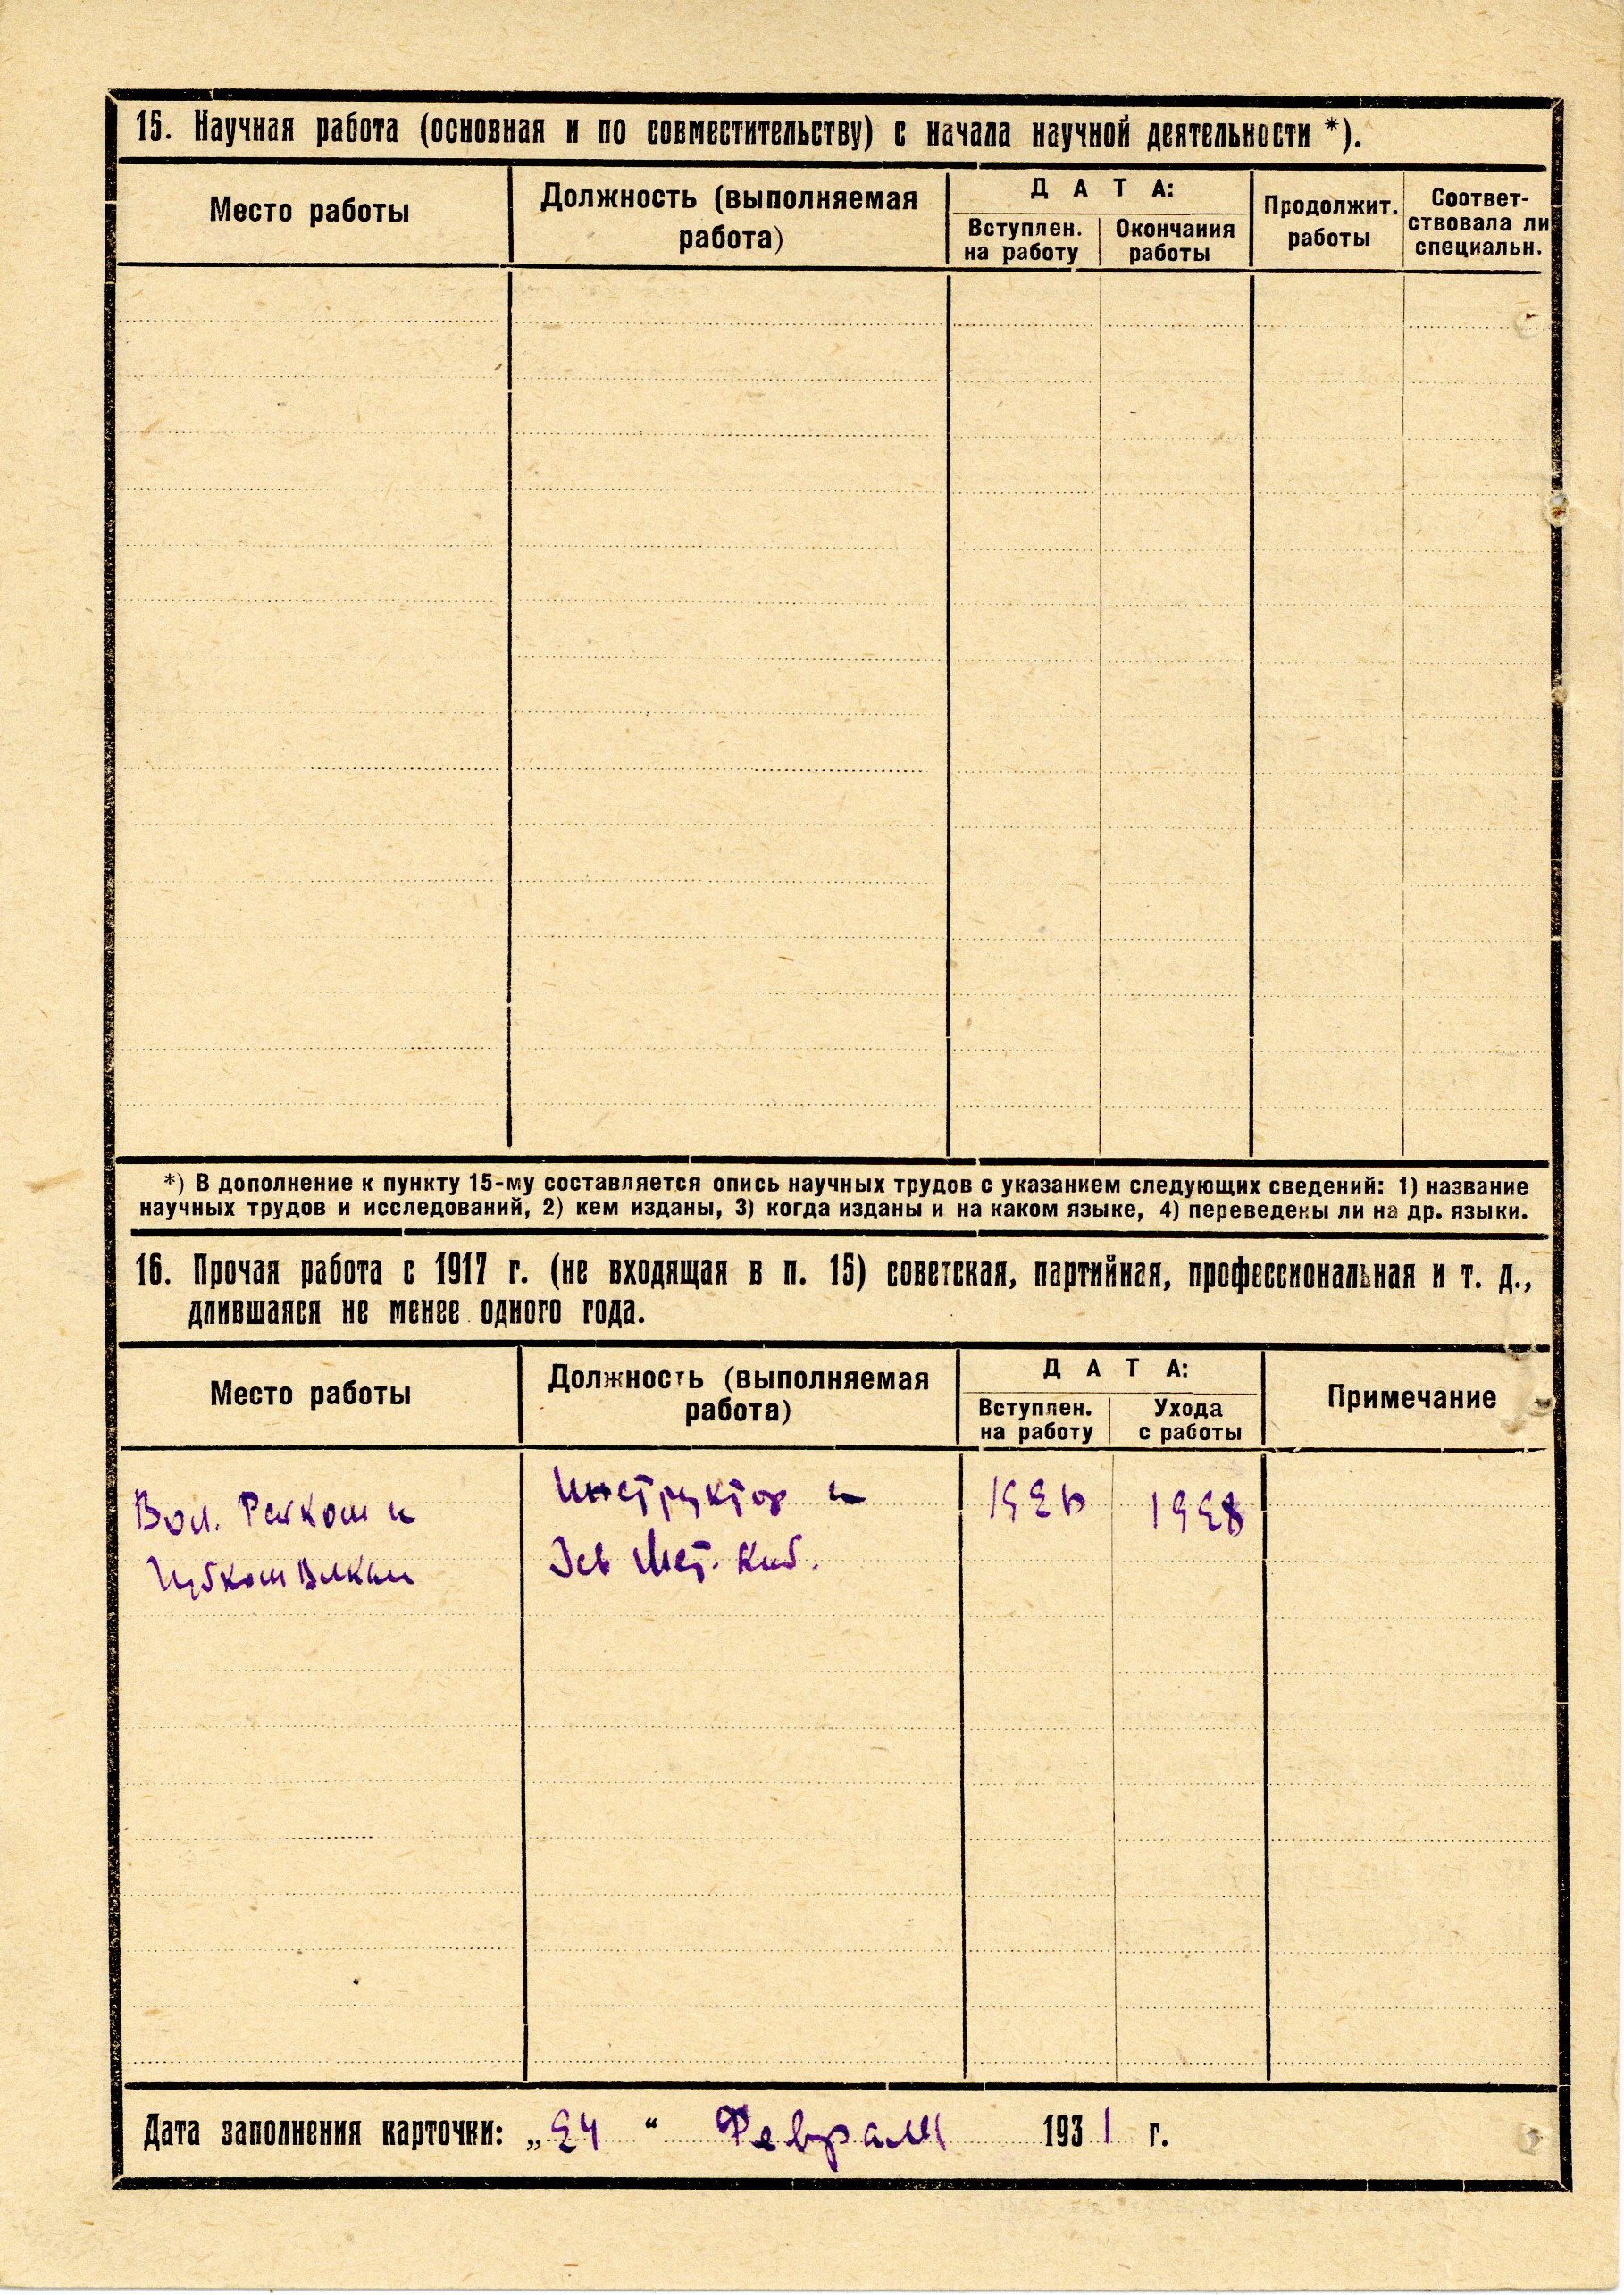 15. Научная работа (основная и по совместительству) с начала научной деятельности *).
Место работы
Должность (выполняемая
работа)
Д А Т А:
Вступлен.
на работу
Окончания
работы
Продолжит.
работы
Соответ-
ствовала ли
специальн.
*) В дополнение к пункту 15-му составляется опись научных трудов с указанием следующих сведений: 1) название
научных трудов и исследований, 2) кем изданы, 3) когда изданы и на каком языке, 4) переведены ли на др. языки.
16. Прочая работа с 1917 г. (не входящая в п. 15) советская, партийная, профессиональная и т. д.,
длившаяся не менее одного года.
Место работы
Должность (выполняемая
работа)
Д А Т А:
Вступлен.
на работу
Ухода
с работы
Примечание
Вол. и
Губком
Инструктор и
Зав Мет. Каб.
1926
1928
Дата заполнения карточки: „24“ Февраля 1931 г.